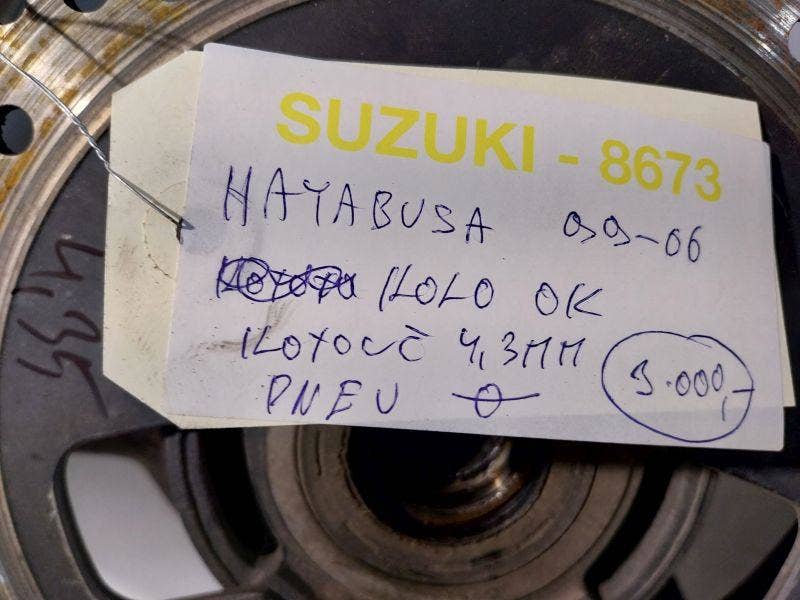 SUZUKI - 8673
HAYABUSA 99-06
KOLO OK
KOTOUČ 4,3MM
PNEU 0
9.000,-
4,35